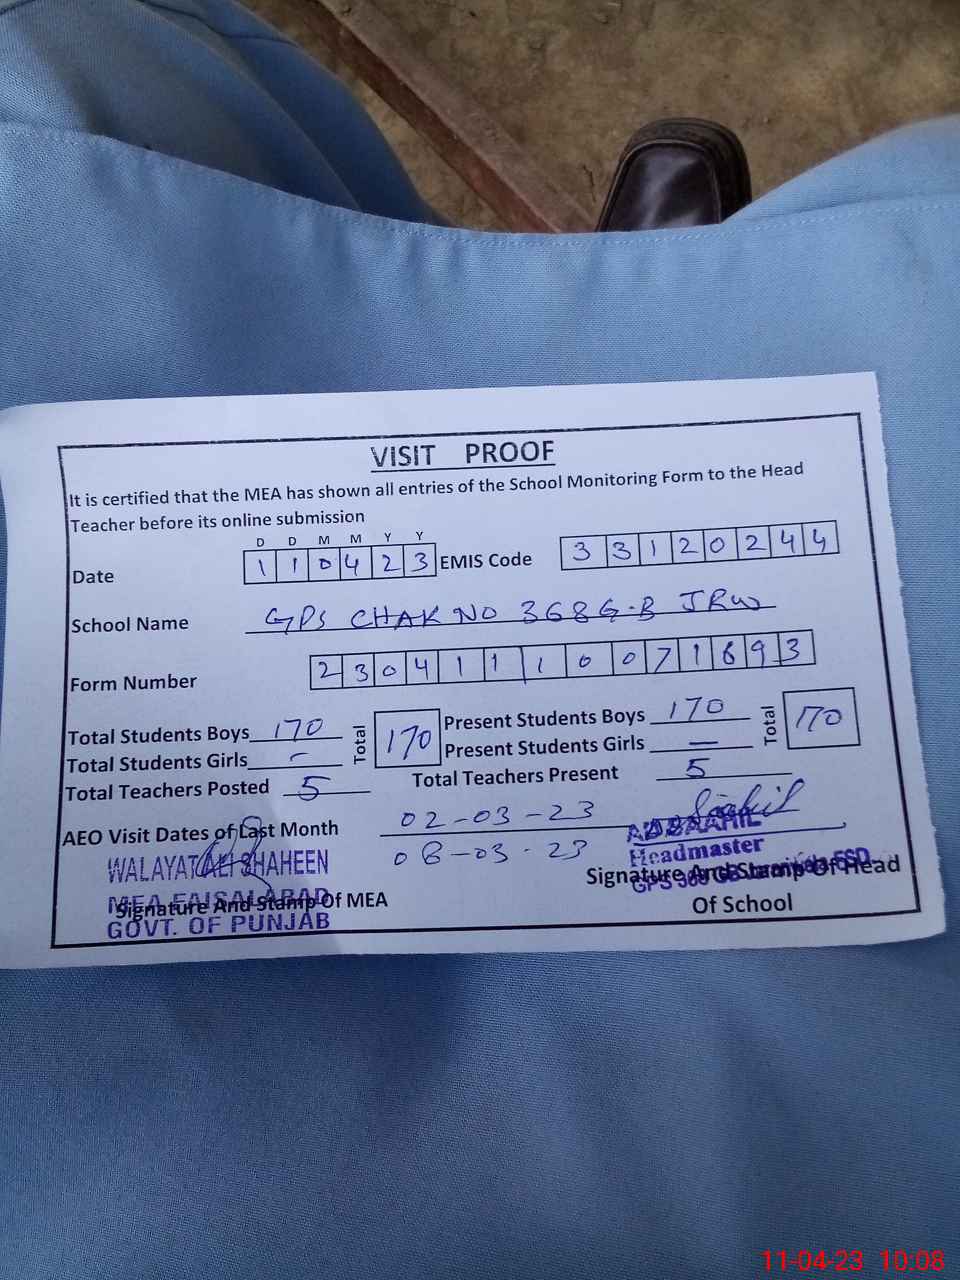 VISIT PROOF
It is certified that the MEA has shown all entries of the School Monitoring Form to the Head
Teacher before its online submission
D D M M Y Y
Date 1 1 0 4 2 3 EMIS Code 3 3 1 2 0 2 4 4
School Name GPS CHAK NO 368 G.B JRW
Form Number 2 3 0 4 1 1 1 0 0 7 1 6 9 3
Total Students Boys 170 Total 170 Present Students Boys 170 Total 170
Total Students Girls - Present Students Girls -
Total Teachers Posted 5 Total Teachers Present 5
AEO Visit Dates of Last Month 02-03-23
08-03-23
WALAYAT ALI SHAHEEN
MEA FAISALABAD
GOVT. OF PUNJAB
Signature And Stamp Of MEA
Headmaster
GPS
Signature And Stamp Of Head
Of School
11-04-23 10:08